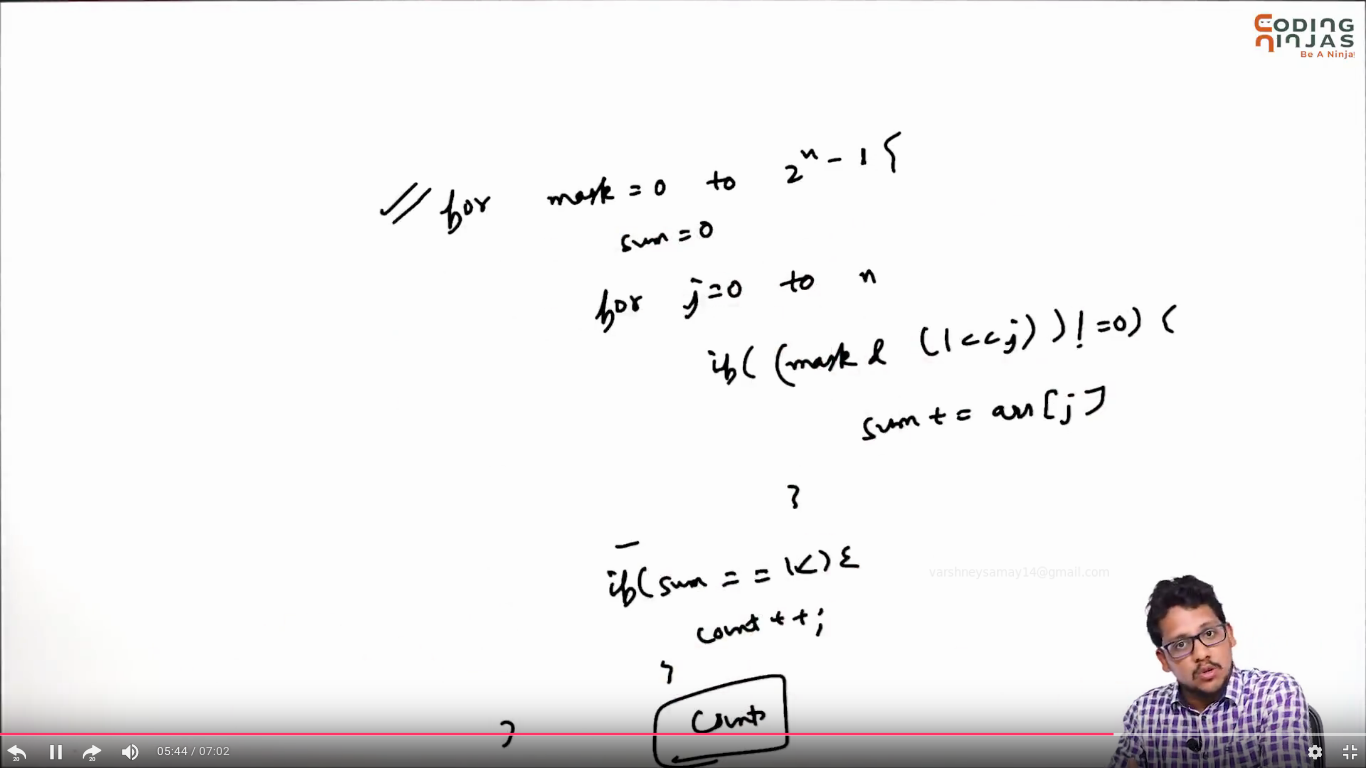 CODING
NINJAS
Be A Ninja
// for mask = 0 to 2^n - 1 {
sum = 0
for j = 0 to n
if( (mask & (1<<j) ) != 0) {
sum += arr[j]
}
if(sum == K) {
count++;
}
count
}
varshneysamay14@gmail.com
20 20 05:44 / 07:02